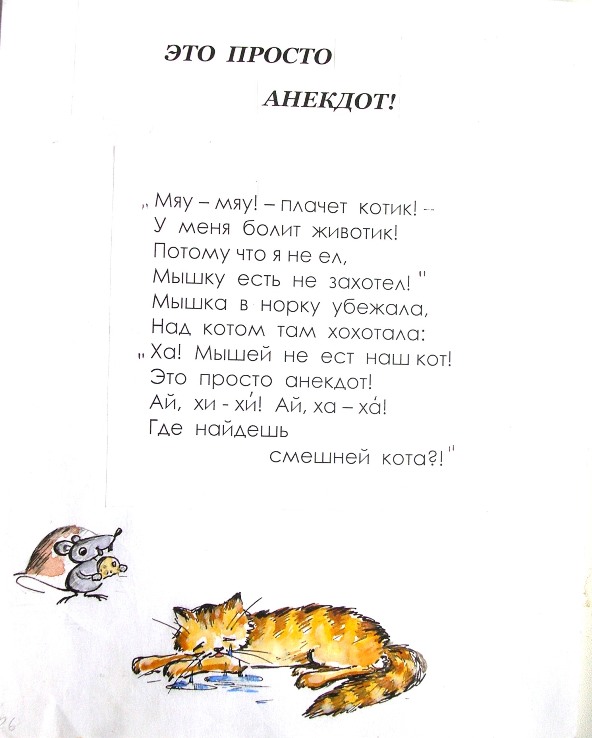 ЭТО ПРОСТО
АНЕКДОТ!
„Мяу – мяу! – плачет котик! --
У меня болит животик!
Потому что я не ел,
Мышку есть не захотел!"
Мышка в норку убежала,
Над котом там хохотала:
„Ха! Мышей не ест наш кот!
Это просто анекдот!
Ай, хи - хи́! Ай, ха – ха́!
Где найдешь
смешней кота?!"
26